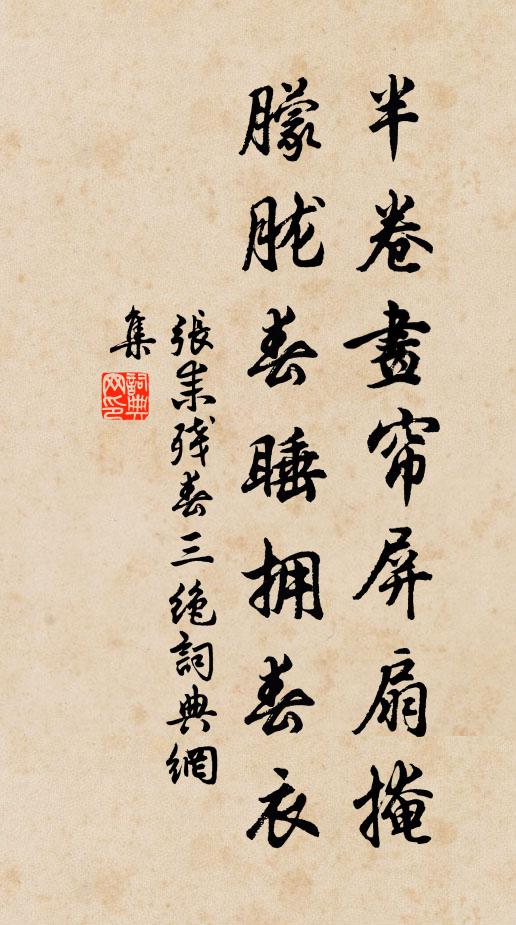 半卷畫帘屏扇掩
朦胧春睡拥春衣
張耒残春三绝詞典網
集
詞典
网印